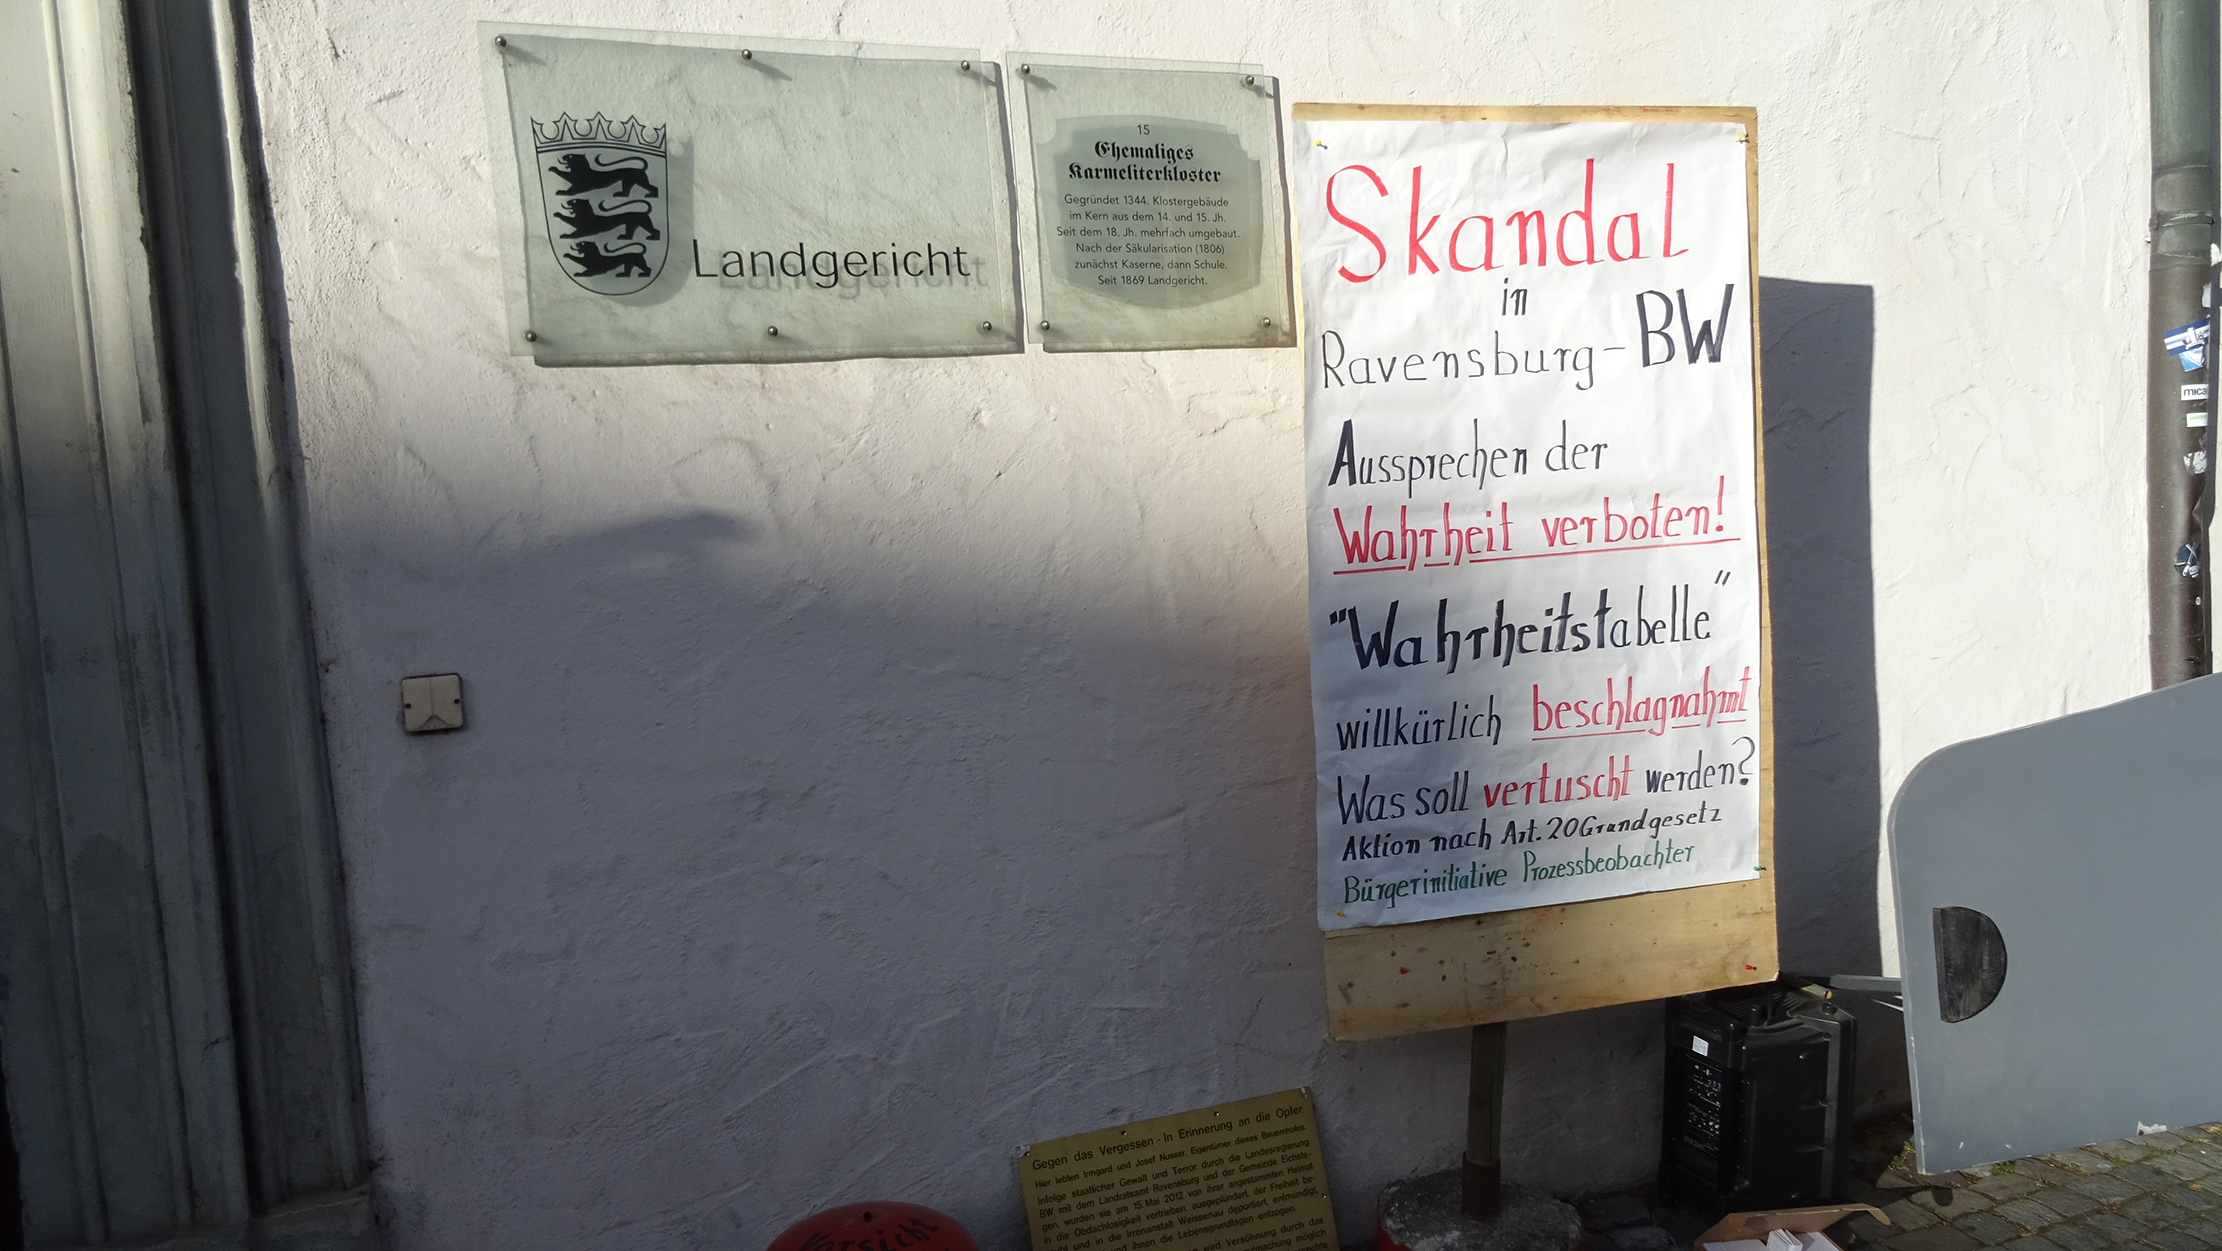 Landgericht
15
Ehemaliges
Karmeliterkloster
Gegründet 1344. Klostergebäude
im Kern aus dem 14. und 15. Jh.
Seit dem 18. Jh. mehrfach umgebaut.
Nach der Säkularisation (1806)
zunächst Kaserne, dann Schule.
Seit 1869 Landgericht.
Skandal
in
Ravensburg-BW
Aussprechen der
Wahrheit verboten!
"Wahrheitstabelle"
willkürlich beschlagnahmt
Was soll vertuscht werden?
Aktion nach Art. 20 Grundgesetz
Bürgerinitiative Prozessbeobachter
Gegen das Vergessen - In Erinnerung an die Opfer
Hier lebten Irmgard und Josef Nusser, Eigentümer dieses Bauernhofes.
Infolge staatlicher Gewalt und Terror durch die Landesregierung
BW mit dem Landratsamt Ravensburg und der Gemeinde Eichste-
gen, wurden sie am 15. Mai 2012 von ihrer angestammten Heimat
in die Obdachlosigkeit vertrieben, ausgeplündert, der Freiheit be-
und in die Irrenanstalt Weissenau deportiert, entmündigt,
und ihnen die Lebensgrundlagen entzogen.
wird Versöhnung durch das
möglich
Vorsicht
mica